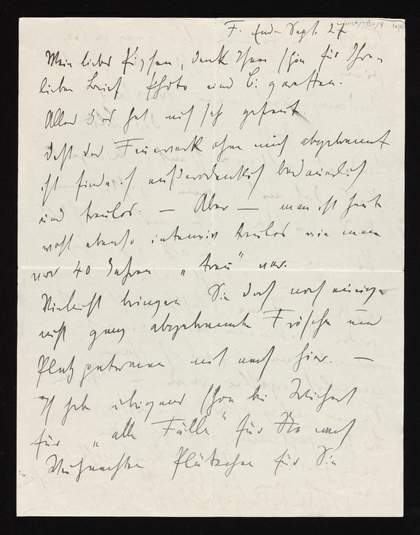 F. End. Sept. 27
Mein lieber, dank Ihnen schön für Ihren
lieben Brief, Photo und Cigaretten.
Alles hat mich sehr gefreut
Daß das Feuerwerk ohne mich abgebrannt
ist finde ich außerordentlich bedauerlich
und treulos. — Aber — man ist heute
wohl ebenso intensiv treulos wie man
vor 40 Jahren „treu" war.
Vielleicht bringen Sie doch noch einige
nicht ganz abgebrannte Frösche und
Platzpatronen mit nach hier. —
Ich habe übrigens schon bei
für „alle Fälle" für nach
Weihnachten Plätzchen für Sie